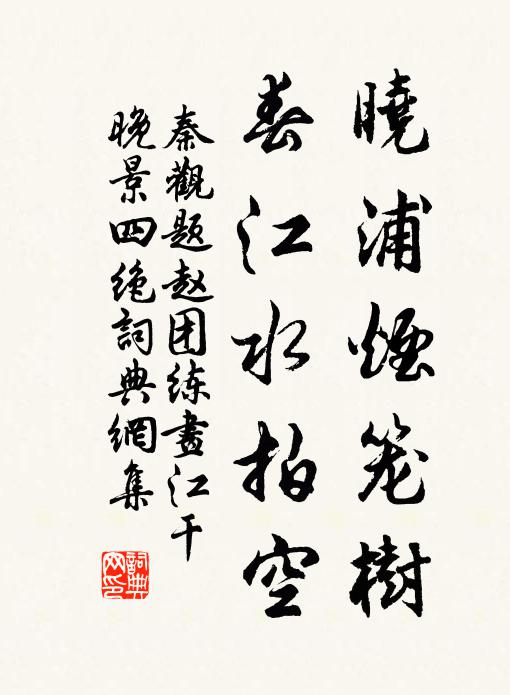 曉浦煙笼樹
春江水拍空
秦觀題赵团练畫江干
晚景四绝詞典網集
詞典網印